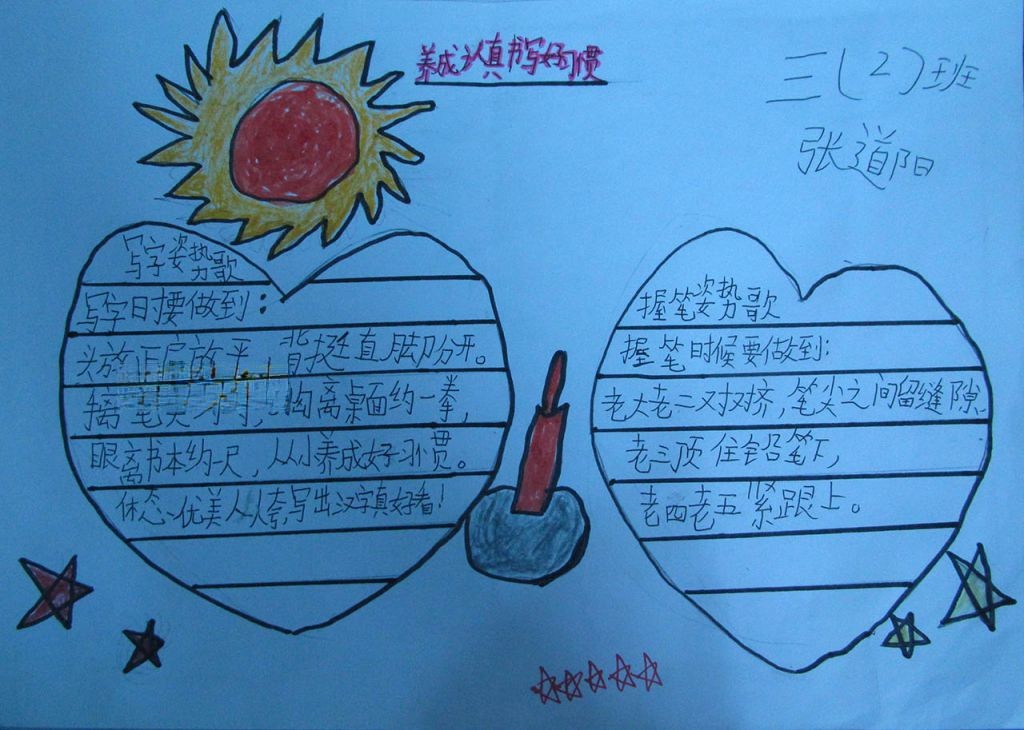 养成认真书写好习惯
三(2)班
张道阳
写字姿势歌
写字时要做到:
头放正肩放平,背挺直脚分开。
离笔尖一寸,胸离桌面约一拳,
眼离书本约一尺,从小养成好习惯。
体态优美人人夸,写出汉字真好看!
握笔姿势歌
握笔时候要做到:
老大老二对对挤,笔尖之间留缝隙.
老三顶住铅笔下,
老四老五紧跟上。